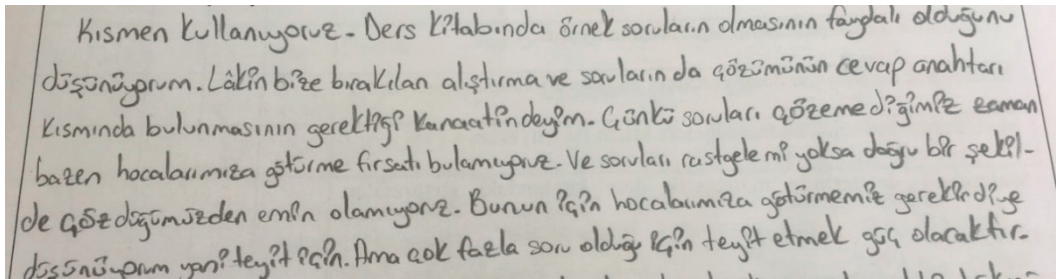 Kısmen kullanıyoruz. Ders kitabında örnek soruların olmasının faydalı olduğunu
düşünüyorum. Lâkin bize bırakılan alıştırma ve soruların da çözümünün cevap anahtarı
kısmında bulunmasının gerektiği kanaatindeyim. Çünkü soruları çözemediğimiz zaman
bazen hocalarımıza götürme fırsatı bulamıyoruz. Ve soruları rastgele mi yoksa doğru bir şekil-
de çözdüğümüzden emin olamıyoruz. Bunun için hocalarımıza götürmemiz gerekir diye
düşünüyorum yani teyit için. Ama çok fazla soru olduğu için teyit etmek güç olacaktır.